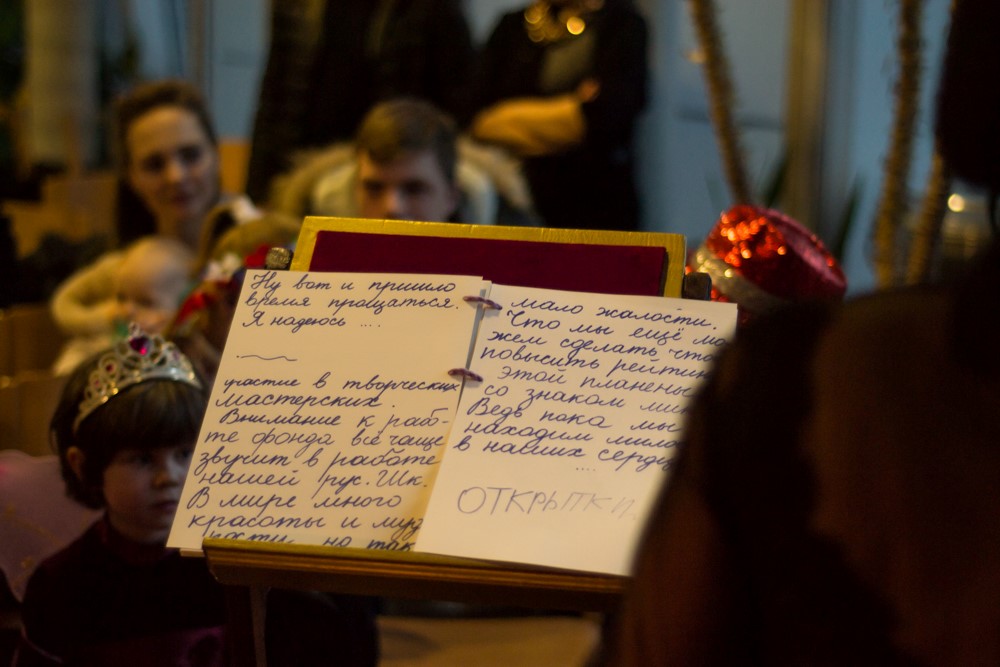 Ну вот и пришло
время прощаться.
Я надеюсь ....
участие в творческих
мастерских.
Внимание к рабо-
те фонда всё чаще
звучит в работе
нашей рус. Шк.
В мире много
красоты и муд
рости, но так
мало жалости.
Что мы ещё мо
жем сделать что
повысить рейтин
этой планеты
со знаком ми
Ведь пока мы
находим мило
в наших сердц
....
ОТКРЫТКИ.